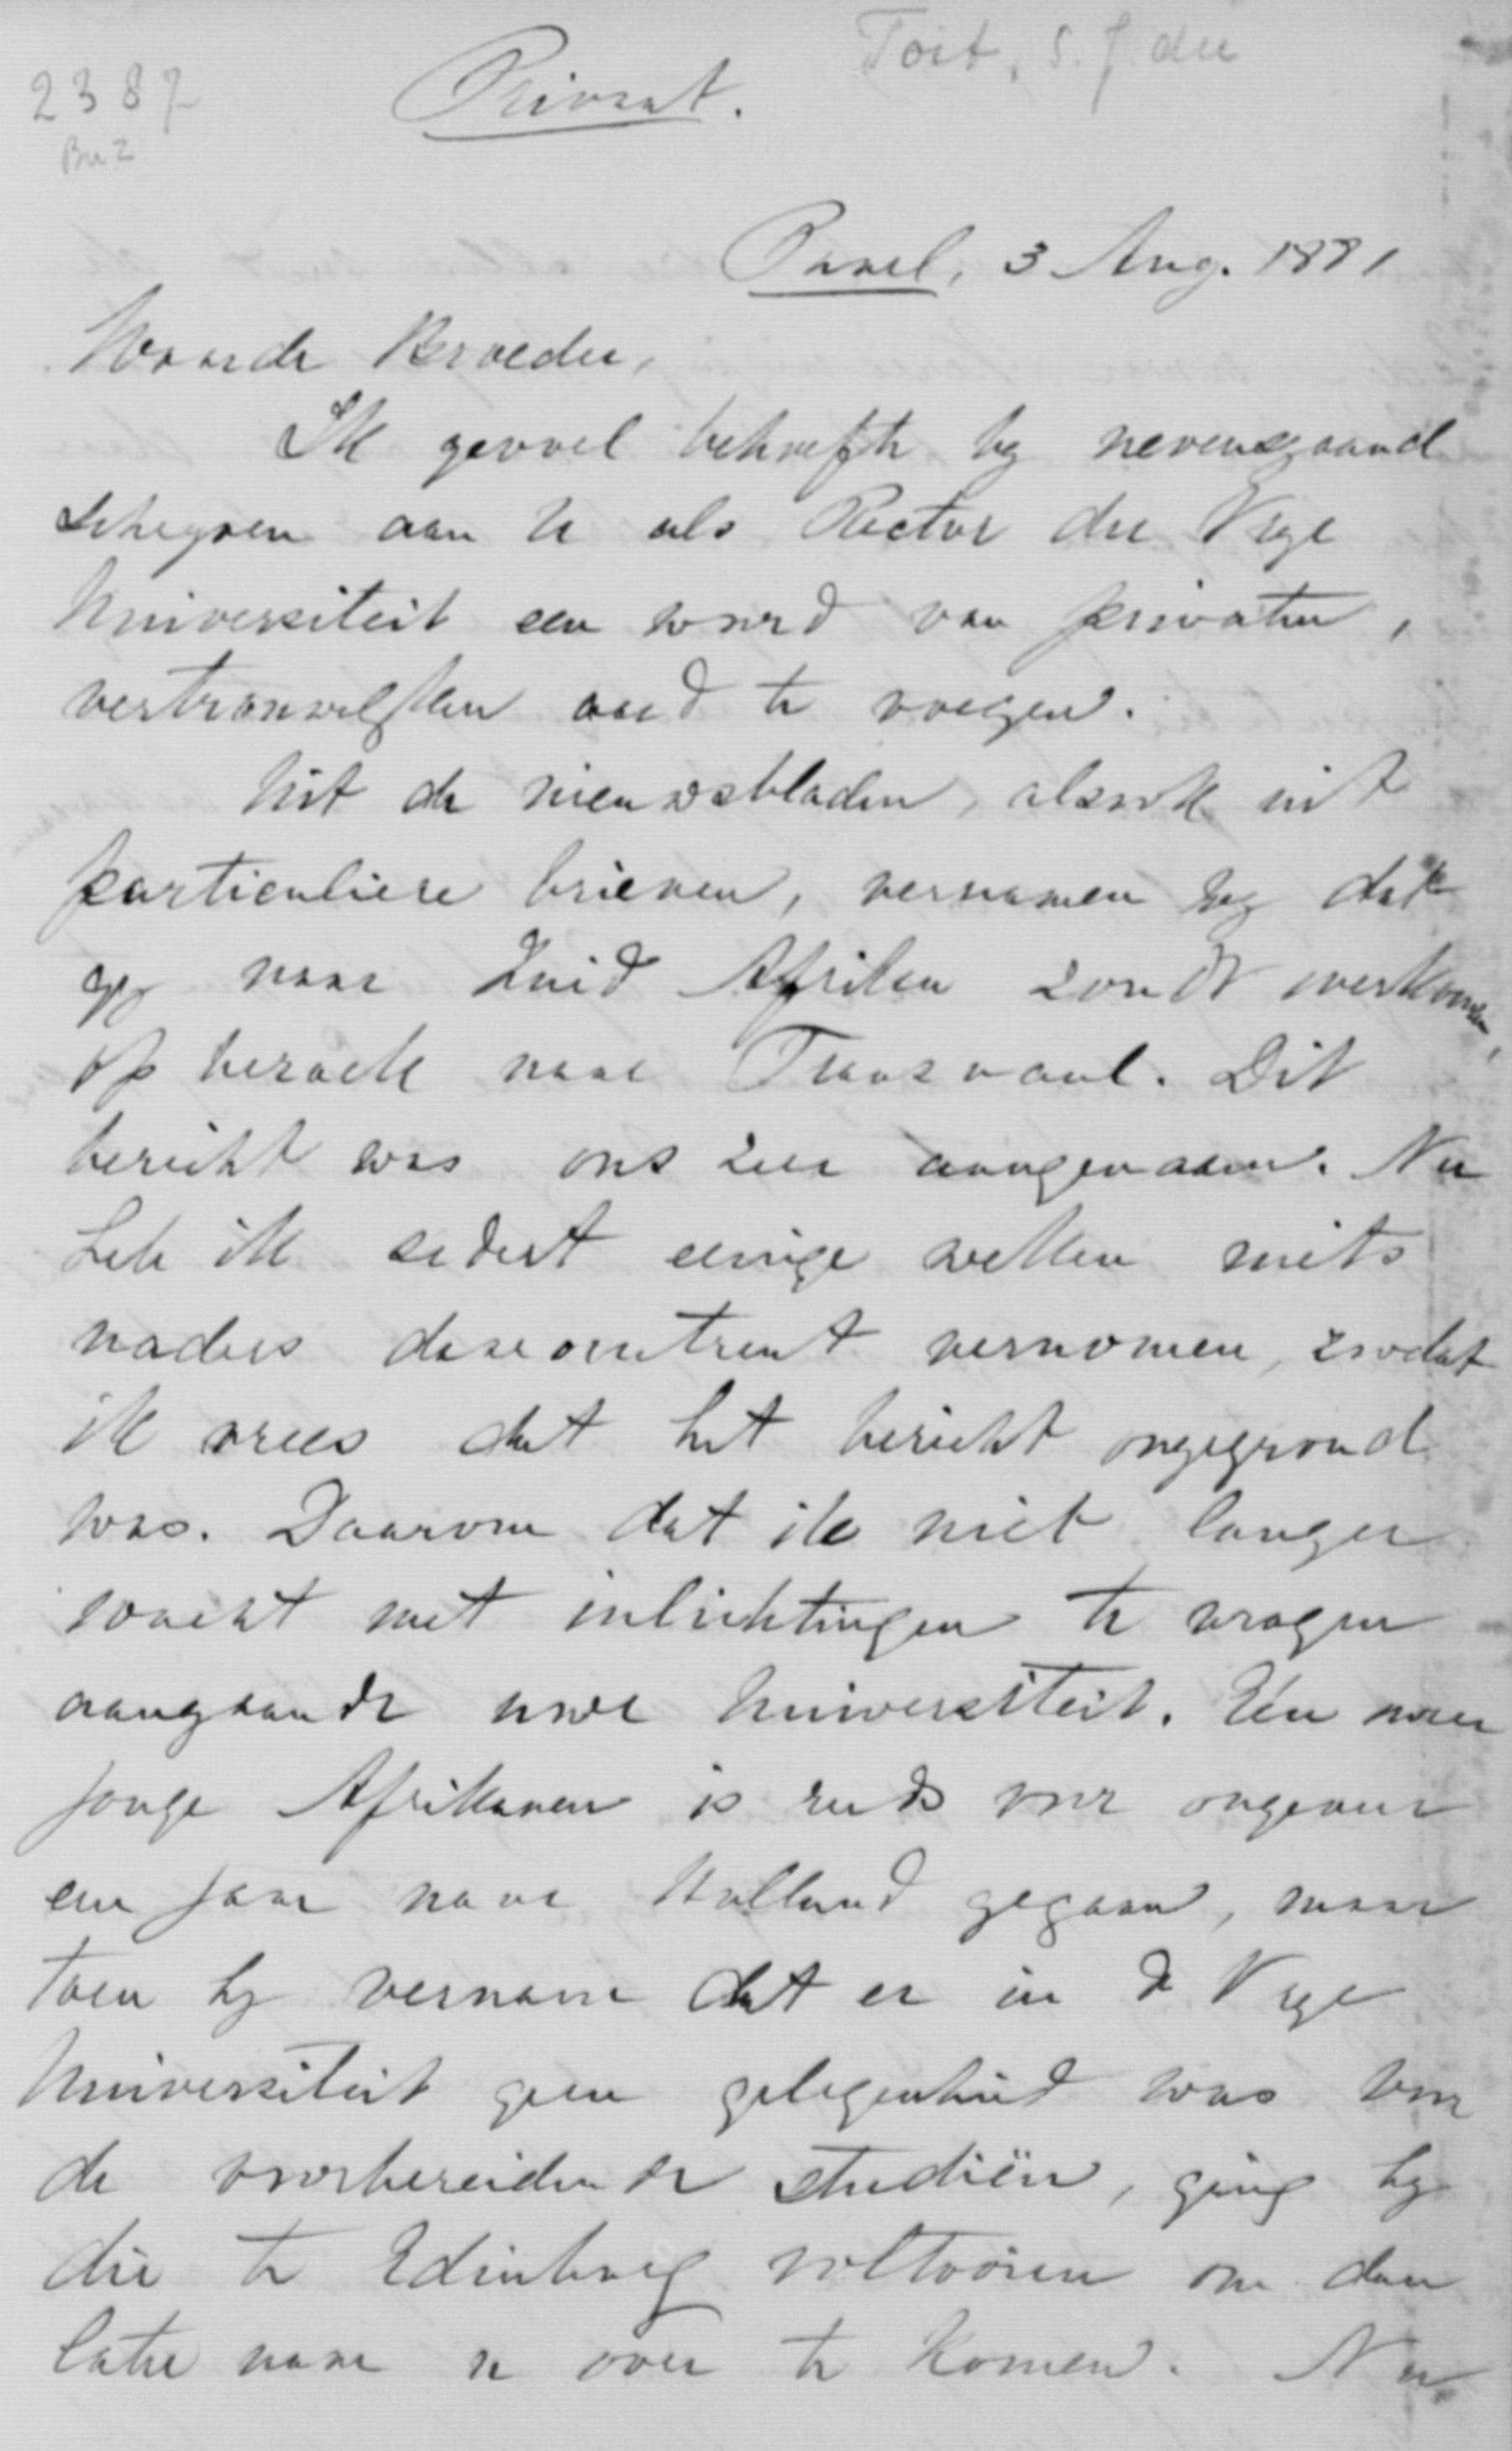 Toit, S. J. du
2387
Buz
Privaat.
Paarl, 3 Aug. 1881
Waarde Broeder,
Ik gevoel behoefte by nevensgaand
schryven aan U als Rector der Vrye
Universiteit een woord van privaten,
vertrouwelyken aard te voegen.
Uit de nieuwsbladen, alsook uit
particuliere brieven, vernamen wy dat
gy naar Zuid Afrika zoudt overkomen,
op bezoek naar Transvaal. Dit
bericht was ons zeer aangenaam. Nu
heb ik sedert eenige weken niets
naders daaromtrent vernomen, zoodat
ik vrees dat het bericht ongegrond
was. Daarom dat ik niet langer
wacht met inlichtingen te vragen
aangaande uwe Universiteit. Eén onzer
jonge Afrikanen is reeds voor ongeveer
een jaar naar Holland gegaan, maar
toen hy vernam dat er in de Vrye
Universiteit geen gelegenheid was voor
de voorbereidende studiën, ging hy
die te Edinburg voltooien om dan
later naar u over te komen. Nu